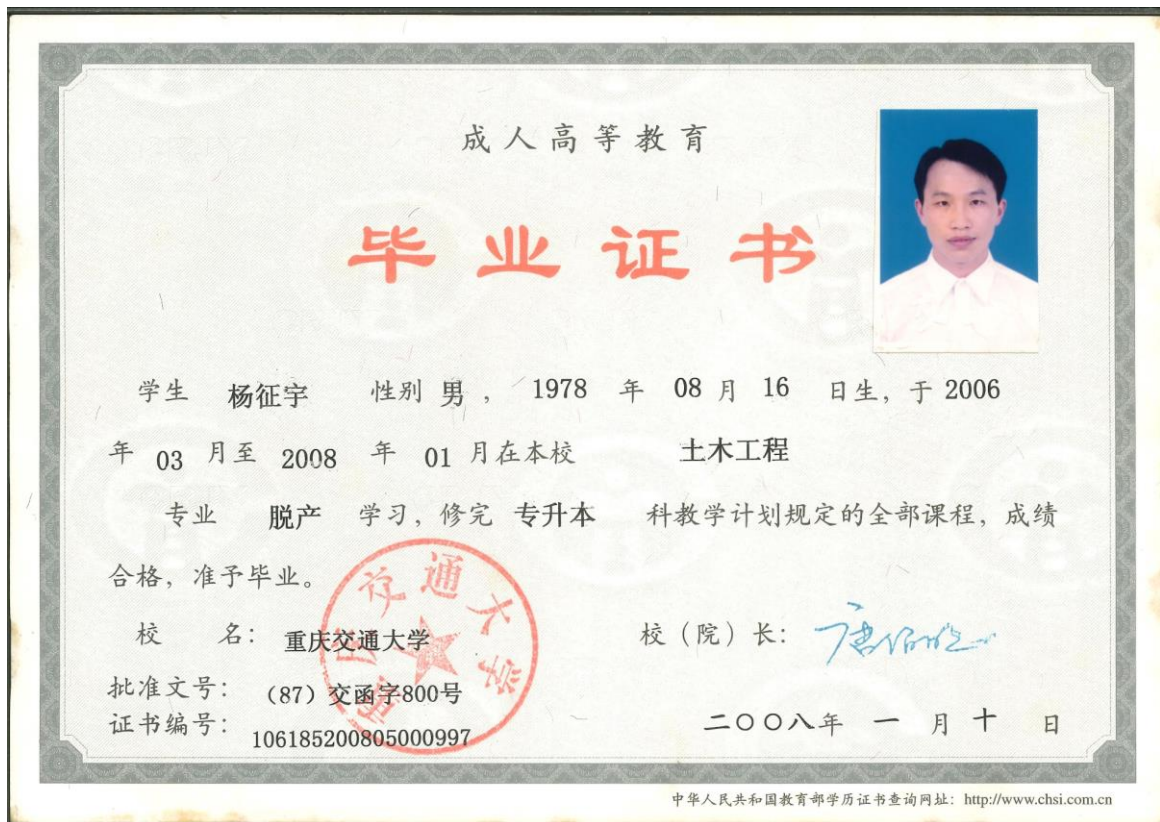 成人高等教育
毕业证书
学生 杨征宇 性别 男, 1978 年 08 月 16 日生, 于 2006
年 03 月至 2008 年 01 月在本校 土木工程
专业 脱产 学习, 修完 专升本 科教学计划规定的全部课程, 成绩
合格, 准予毕业。
校 名: 重庆交通大学 校(院)长:
重庆交通大学
批准文号: (87)交函字800号
证书编号: 106185200805000997 二〇〇八年 一 月 十 日
中华人民共和国教育部学历证书查询网址: http://www.chsi.com.cn